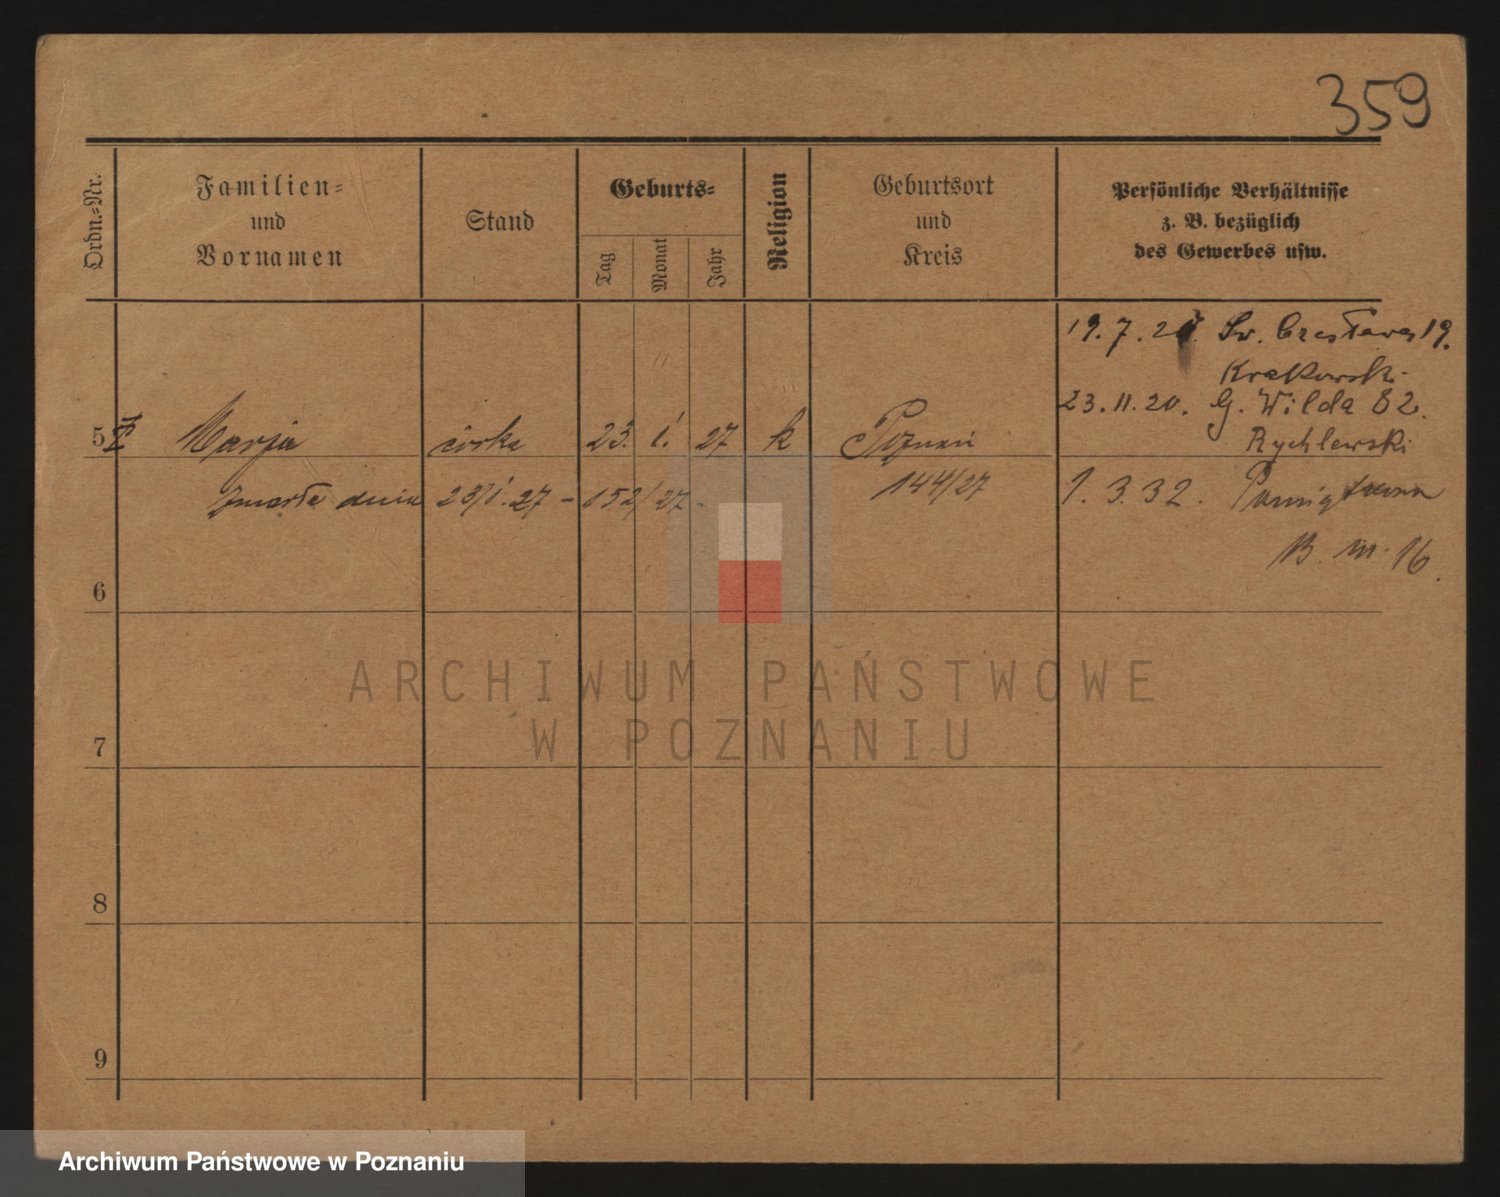 359
Ordn.=Nr.
Familien=
und
Vornamen
Stand
Geburts=
Tag
Monat
Jahr
Religion
Geburtsort
und
Kreis
Persönliche Verhältnisse
z. B. bezüglich
des Gewerbes usw.
19. 7. 20. Św. Czesława 19.
Krakowski
23. 11. 20. G. Wilda 82.
Rychlewski
5 Marja córka 23. 1. 27 k Poznań
zmarła dnia 23/1. 27 - 152/27 - 144/27
1. 3. 32.
B. m. 16.
6
7
8
9
ARCHIWUM PAŃSTWOWE
W POZNANIU
Archiwum Państwowe w Poznaniu